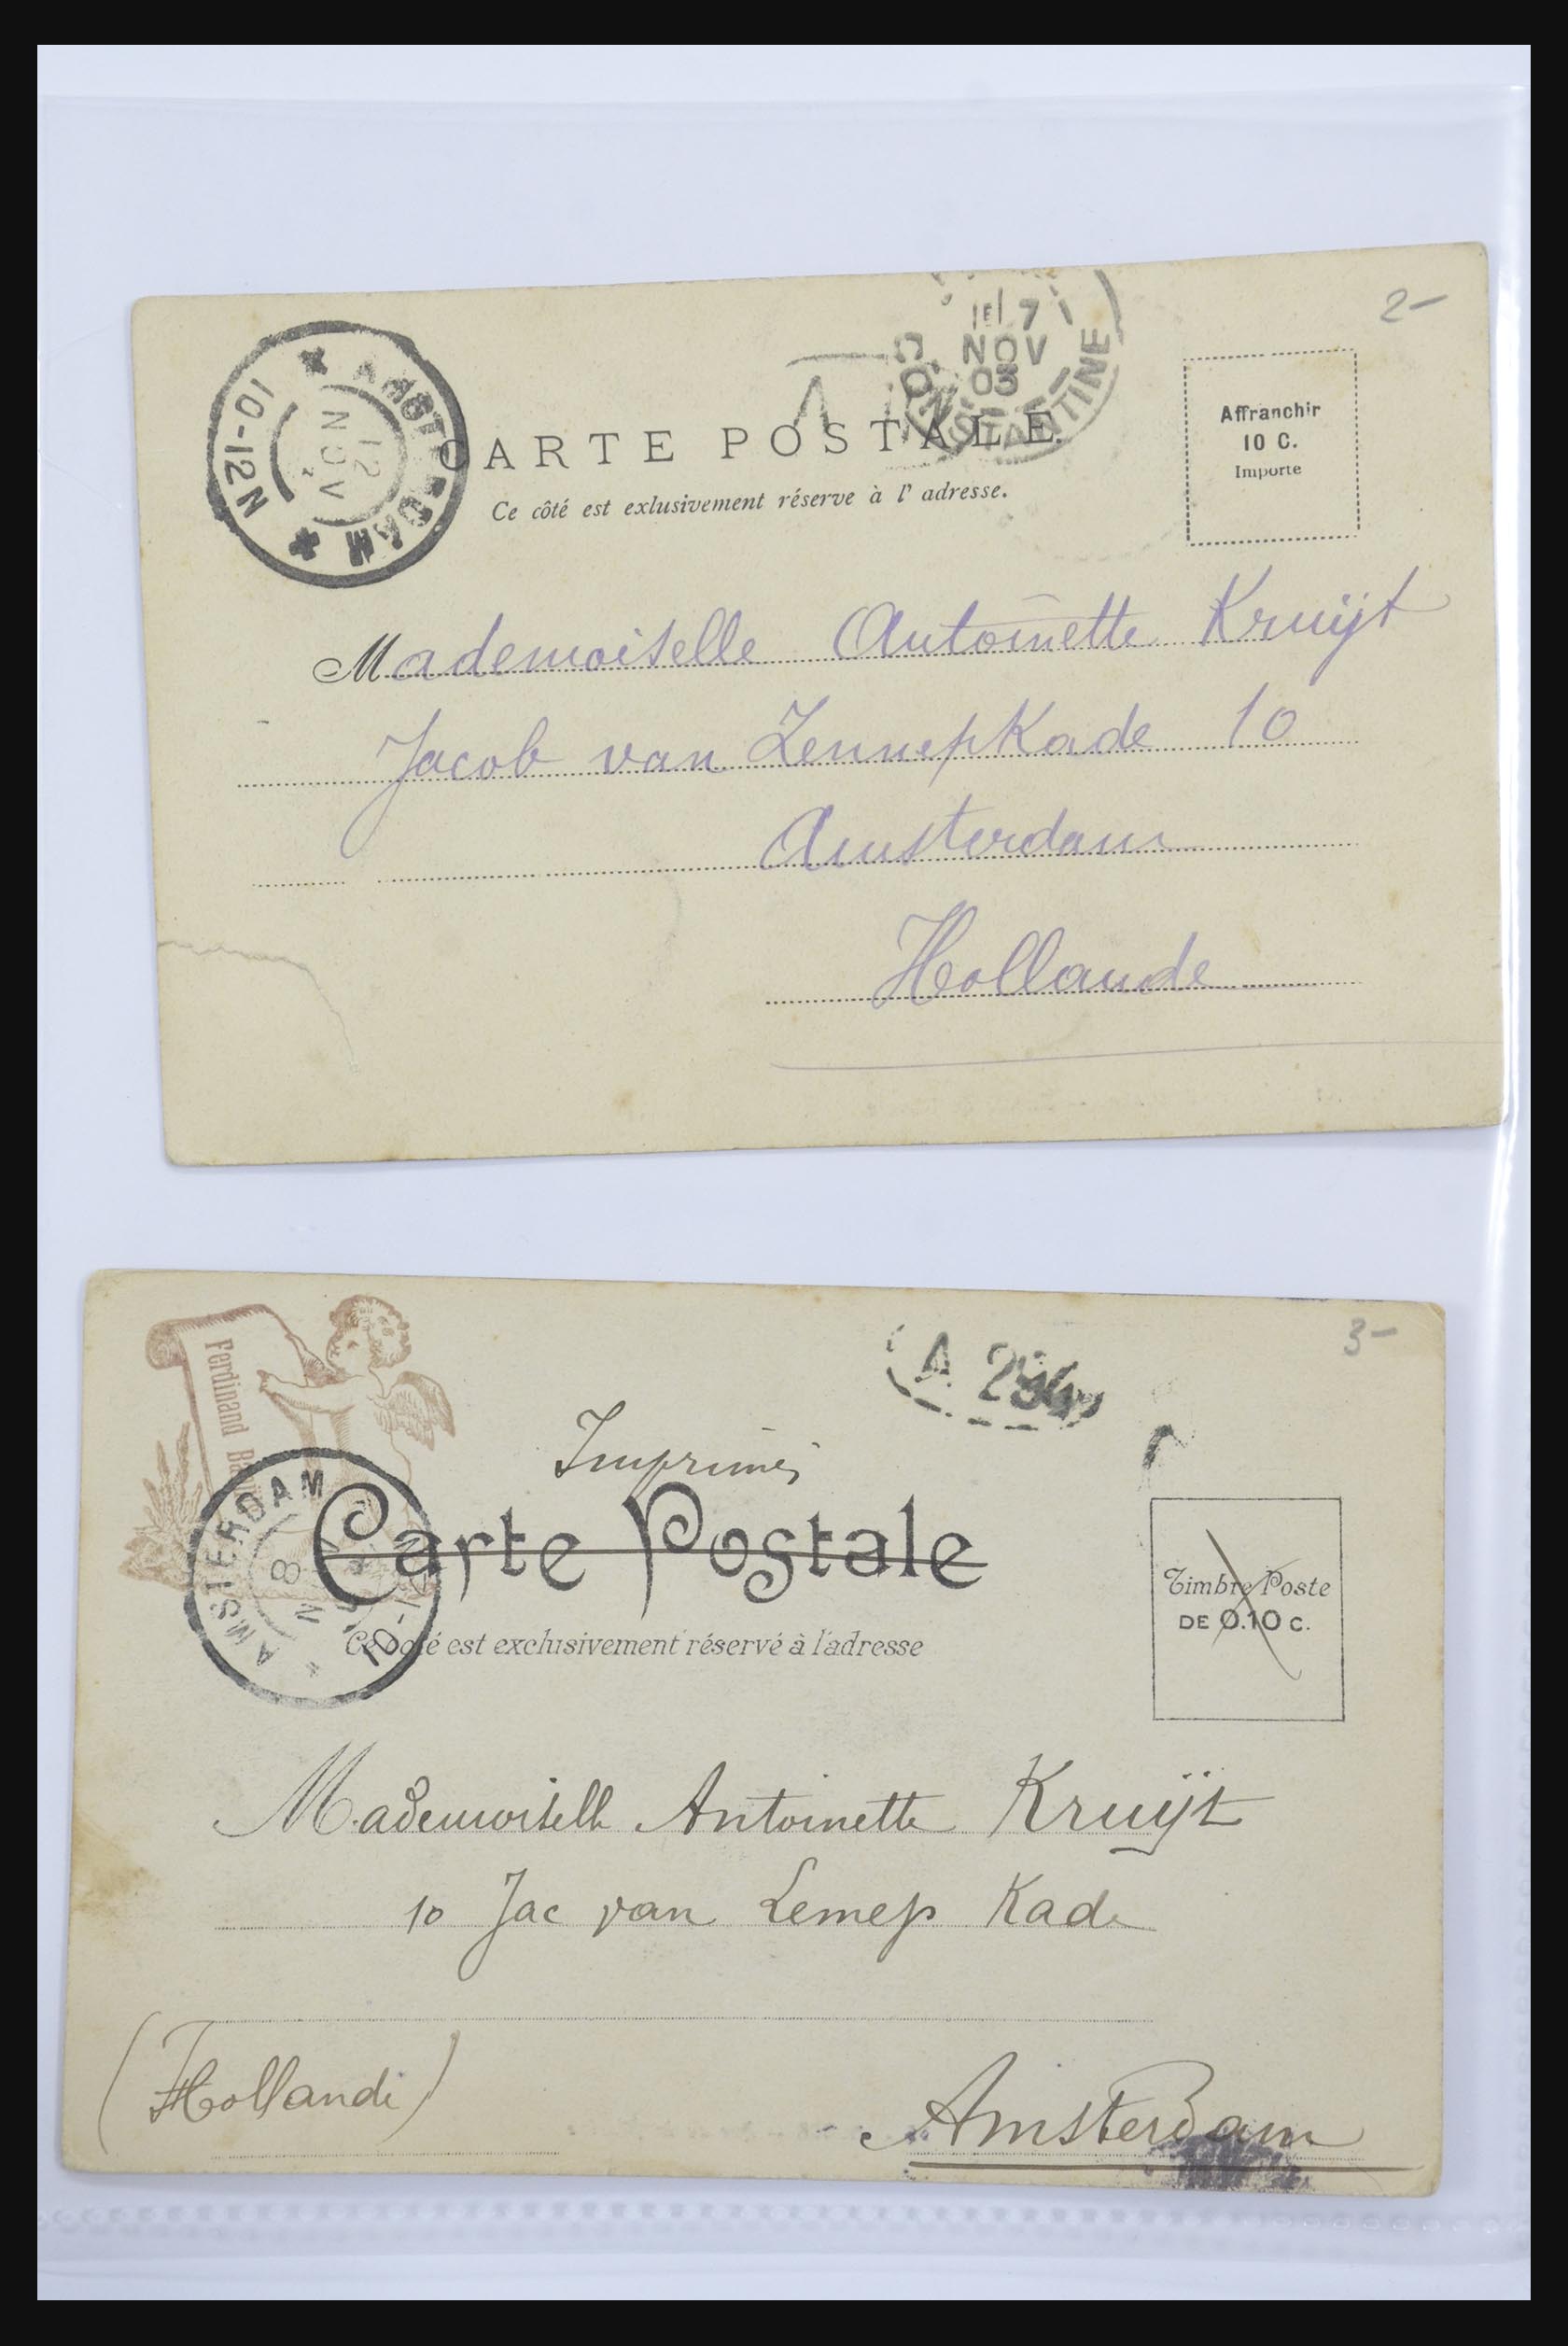 2-
7
NOV
03
CONSTANTINE
AMSTERDAM
12
NOV
10-12N
CARTE POSTALE.
Ce côté est exlusivement réserve à l' adresse.
Affranchir
10 C.
Importe
Mademoiselle Antoinette Kruijt
Jacob van LennepKade 10
Amsterdam
Hollande
3-
Ferdinand
A 294
Imprimés
Carte Postale
Ce côté est exclusivement réservé à l'adresse
AMSTERDAM
8
Timbre Poste
DE 0.10 c.
Mademoiselle Antoinette Kruijt
10 Jac van Lennep Kade
(Hollande)
Amsterdam